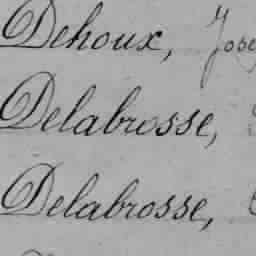 Dehoux, Jose
Delabrosse,
Delabrosse,